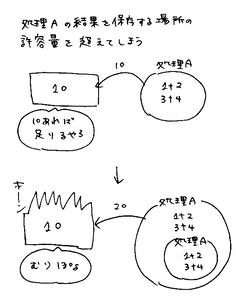 処理Aの結果を保存する場所の
許容量を超えてしまう
10
処理A
10
1+2
3+4
10あれば
足りるやろ
↓
ボーン
20
処理A
1+2
3+4
10
処理A
1+2
3+4
むり ぽよ